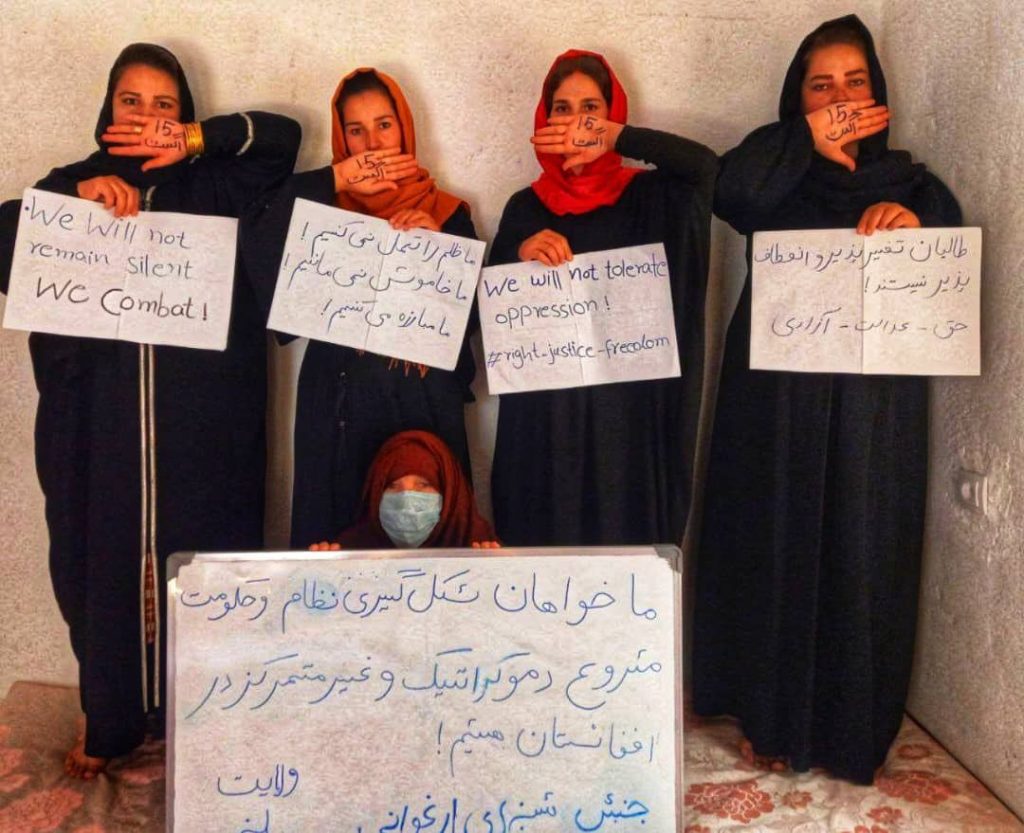 15
اگست
15
اگست
15
اگست
15
اگست
We will not
remain silent
We combat!
ما ظلم را تحمل نمی کنیم!
ما خاموش نمی مانیم!
ما مبارزه می کنیم!
We will not tolerate
oppression!
#right-justice-freedom
طالبان تغییر پذیر و انعطاف
پذیر نیستند!
حق - عدالت - آزادی
ما خواهان شکل گیری نظام و حکومت
مشروع دموکراتیک و غیر متمرکز در
افغانستان هستیم!
ولایت
جنبش شنبه‌های ارغوانی